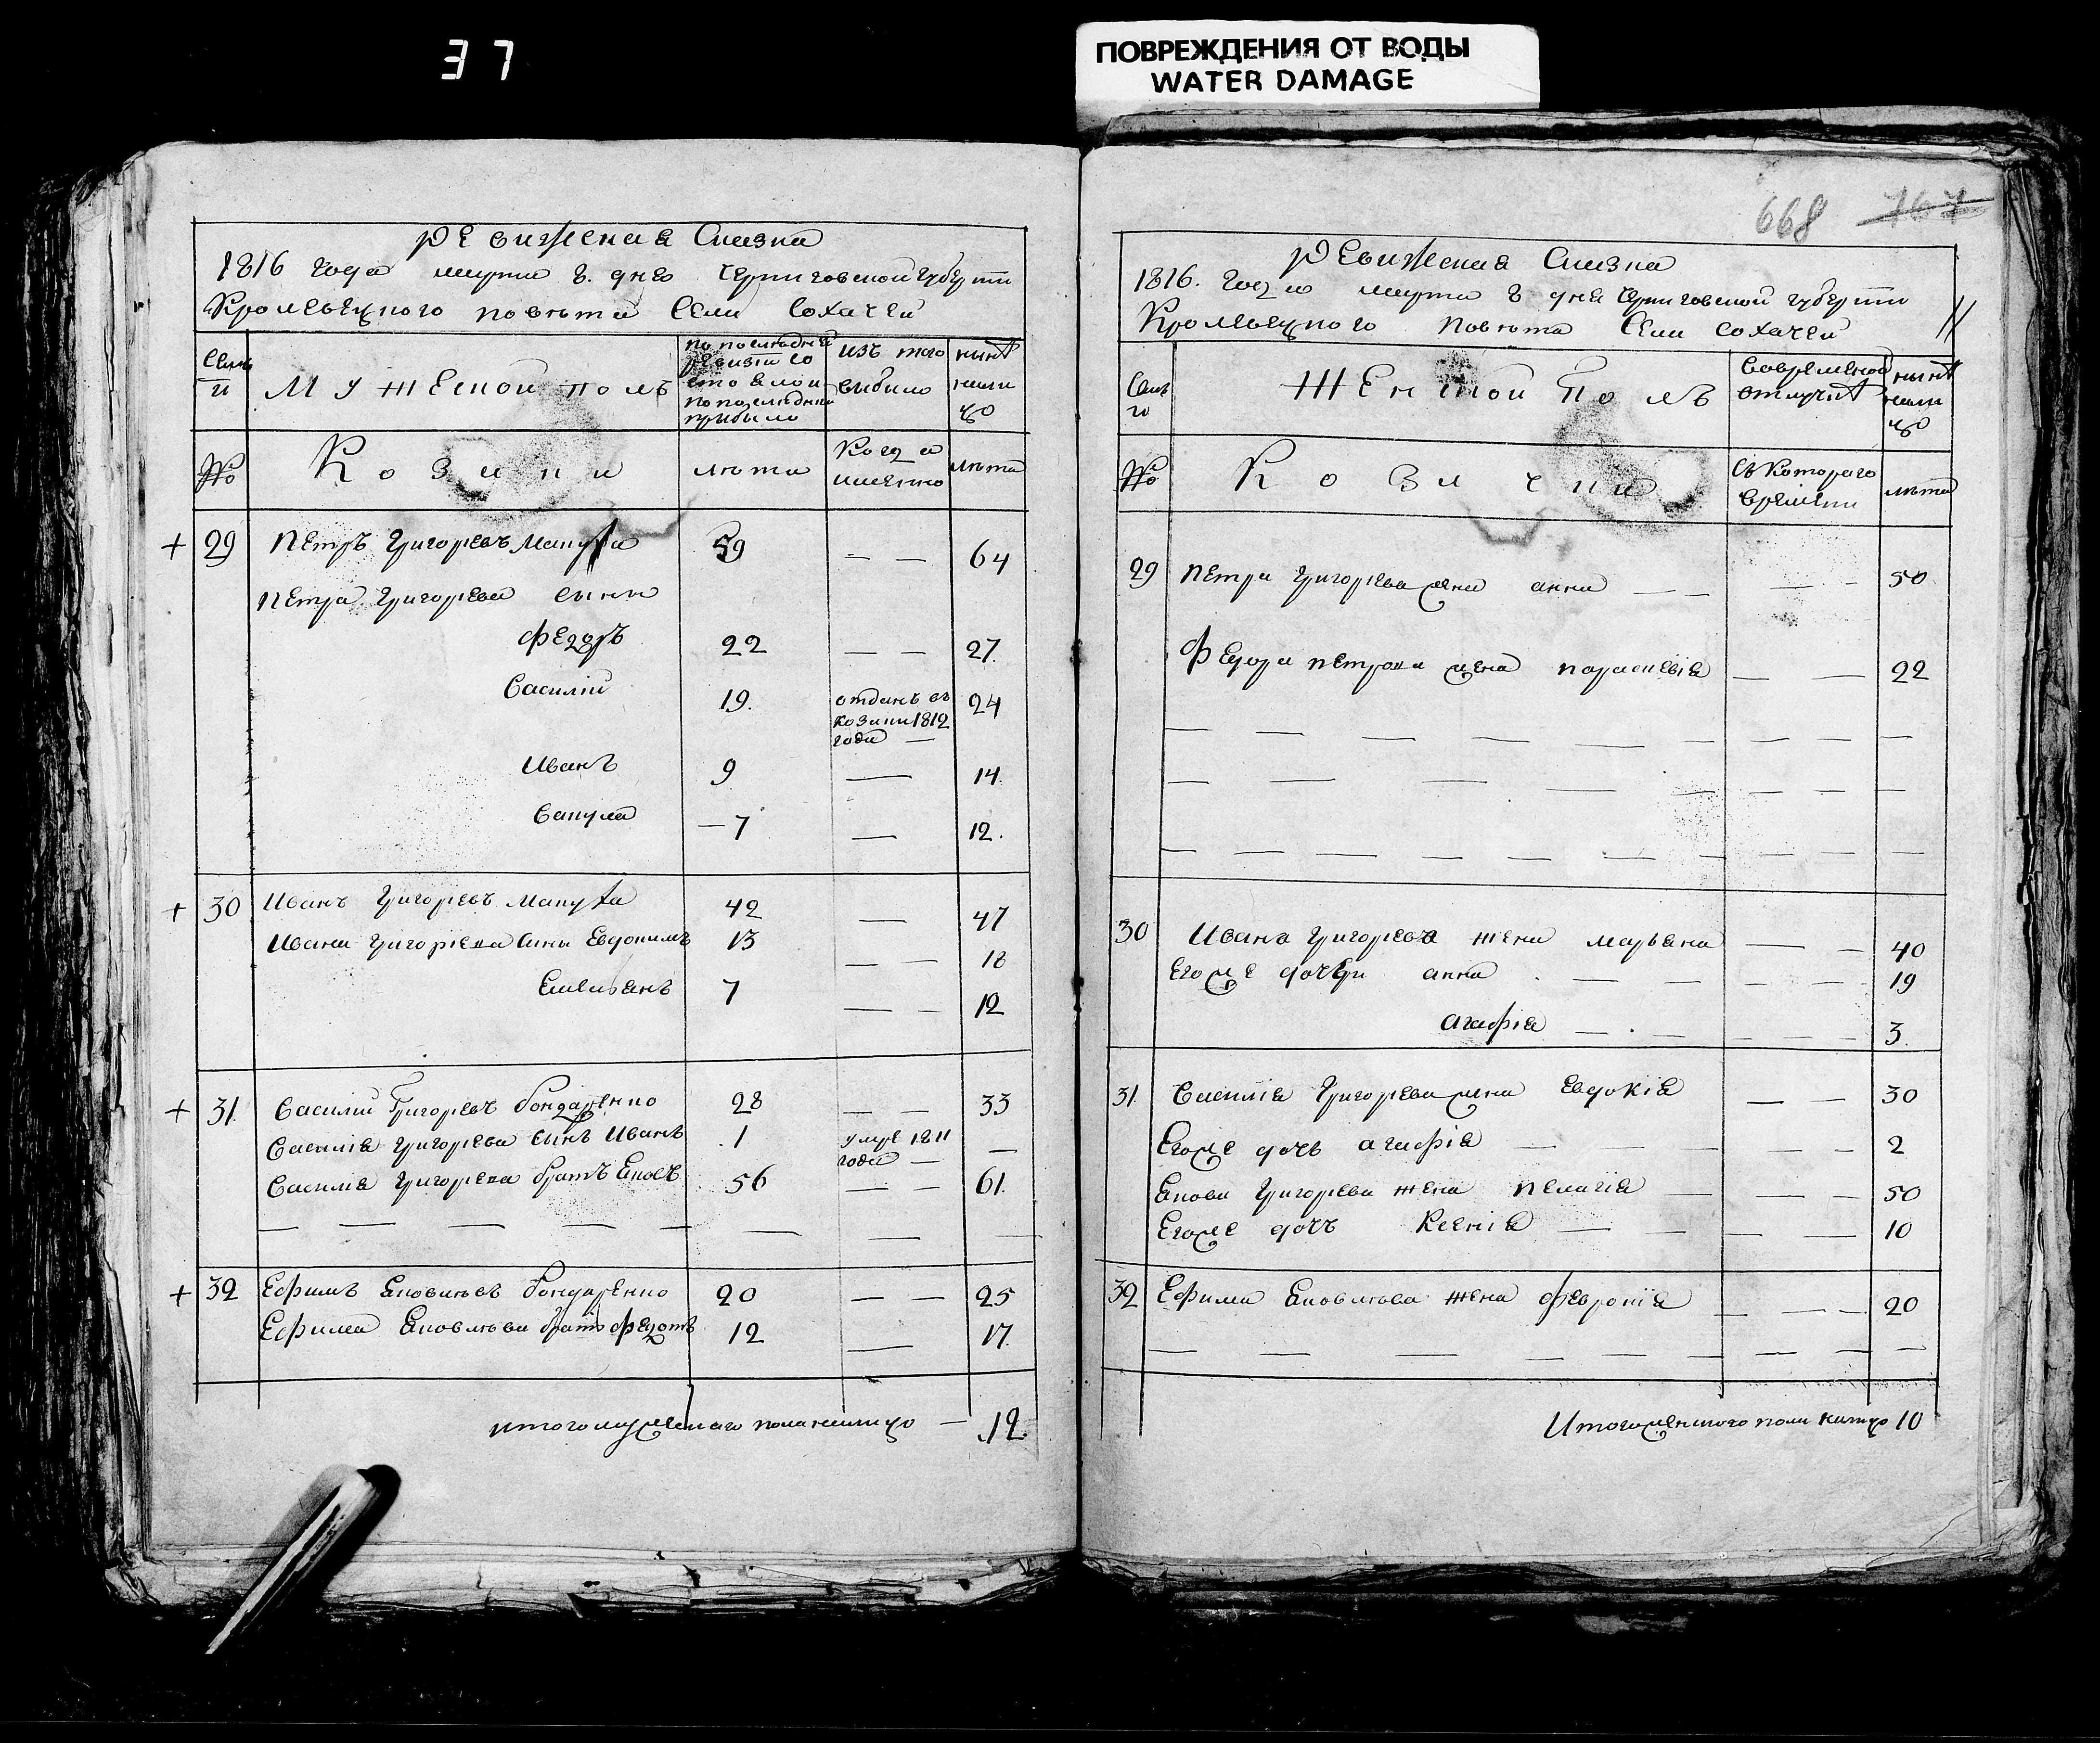 37
ПОВРЕЖДЕНИЯ ОТ ВОДЫ
WATER DAMAGE
Ревижская Сказка
1816 года марта 8. дня Черниговской губернии
Кролевецкого повѣта Села Сохачей
Семьи
Мужеской полъ
по последней ревизіи состояло и по последней прибыло
изъ того выбыло
нынѣ на лицо
№
Козаки
лѣта
Когда именно
лѣта
+ 29 Петръ Григорьевъ Мапуха 59 — — 64
Петра Григорьева сыны
Федоръ 22 — — 27.
Василій 19. отданъ въ козаки 1812 года — 24
Иванъ 9 — 14.
Вакула — 7 — 12.
+ 30 Иванъ Григорьевъ Мапуха 42 — 47
Ивана Григорьева сыны Евдокимъ 13 — — 18
Емельянъ 7 — — 12
+ 31. Василій Григорьевъ Бондаренко 28 — — 33
Василія Григорьева сынъ Иванъ 1 умре 1811 года — —
Василія Григорьева братъ Яковъ 56 — — 61.
+ 32 Ефимъ Яковлевъ Бондаренко 20 — — 25
Ефима Яковлева братъ Федотъ 12 — 17.
итого мужеского пола на лицо — 12.
668 767
Ревижская Сказка
1816. года марта 8 дня Черниговской губернии
Кролевецкого Повѣта Села Сохачей //
Семьи
Женской Полъ
Во временной отлучкѣ
нынѣ на лицо
№
Козачки
Съ Котораго времени
лѣта
29 Петра Григорьева жена анна — — — — 50.
Федора Петрова жена параскевія — — 22
30 Ивана Григорьева жена марьяна — — 40
Его же дочери анна — — — — — 19
агафія — — — — — 3.
31. Василія Григорьева жена Евдокія — — 30
Его же дочь агафія — — — — — 2
Якова Григорьева жена пелагія — — — — 50
Его же дочь Ксенія — — — — 10
32 Ефима Яковлева жена феврокія — — — 20
Итого женского пола на лицо 10